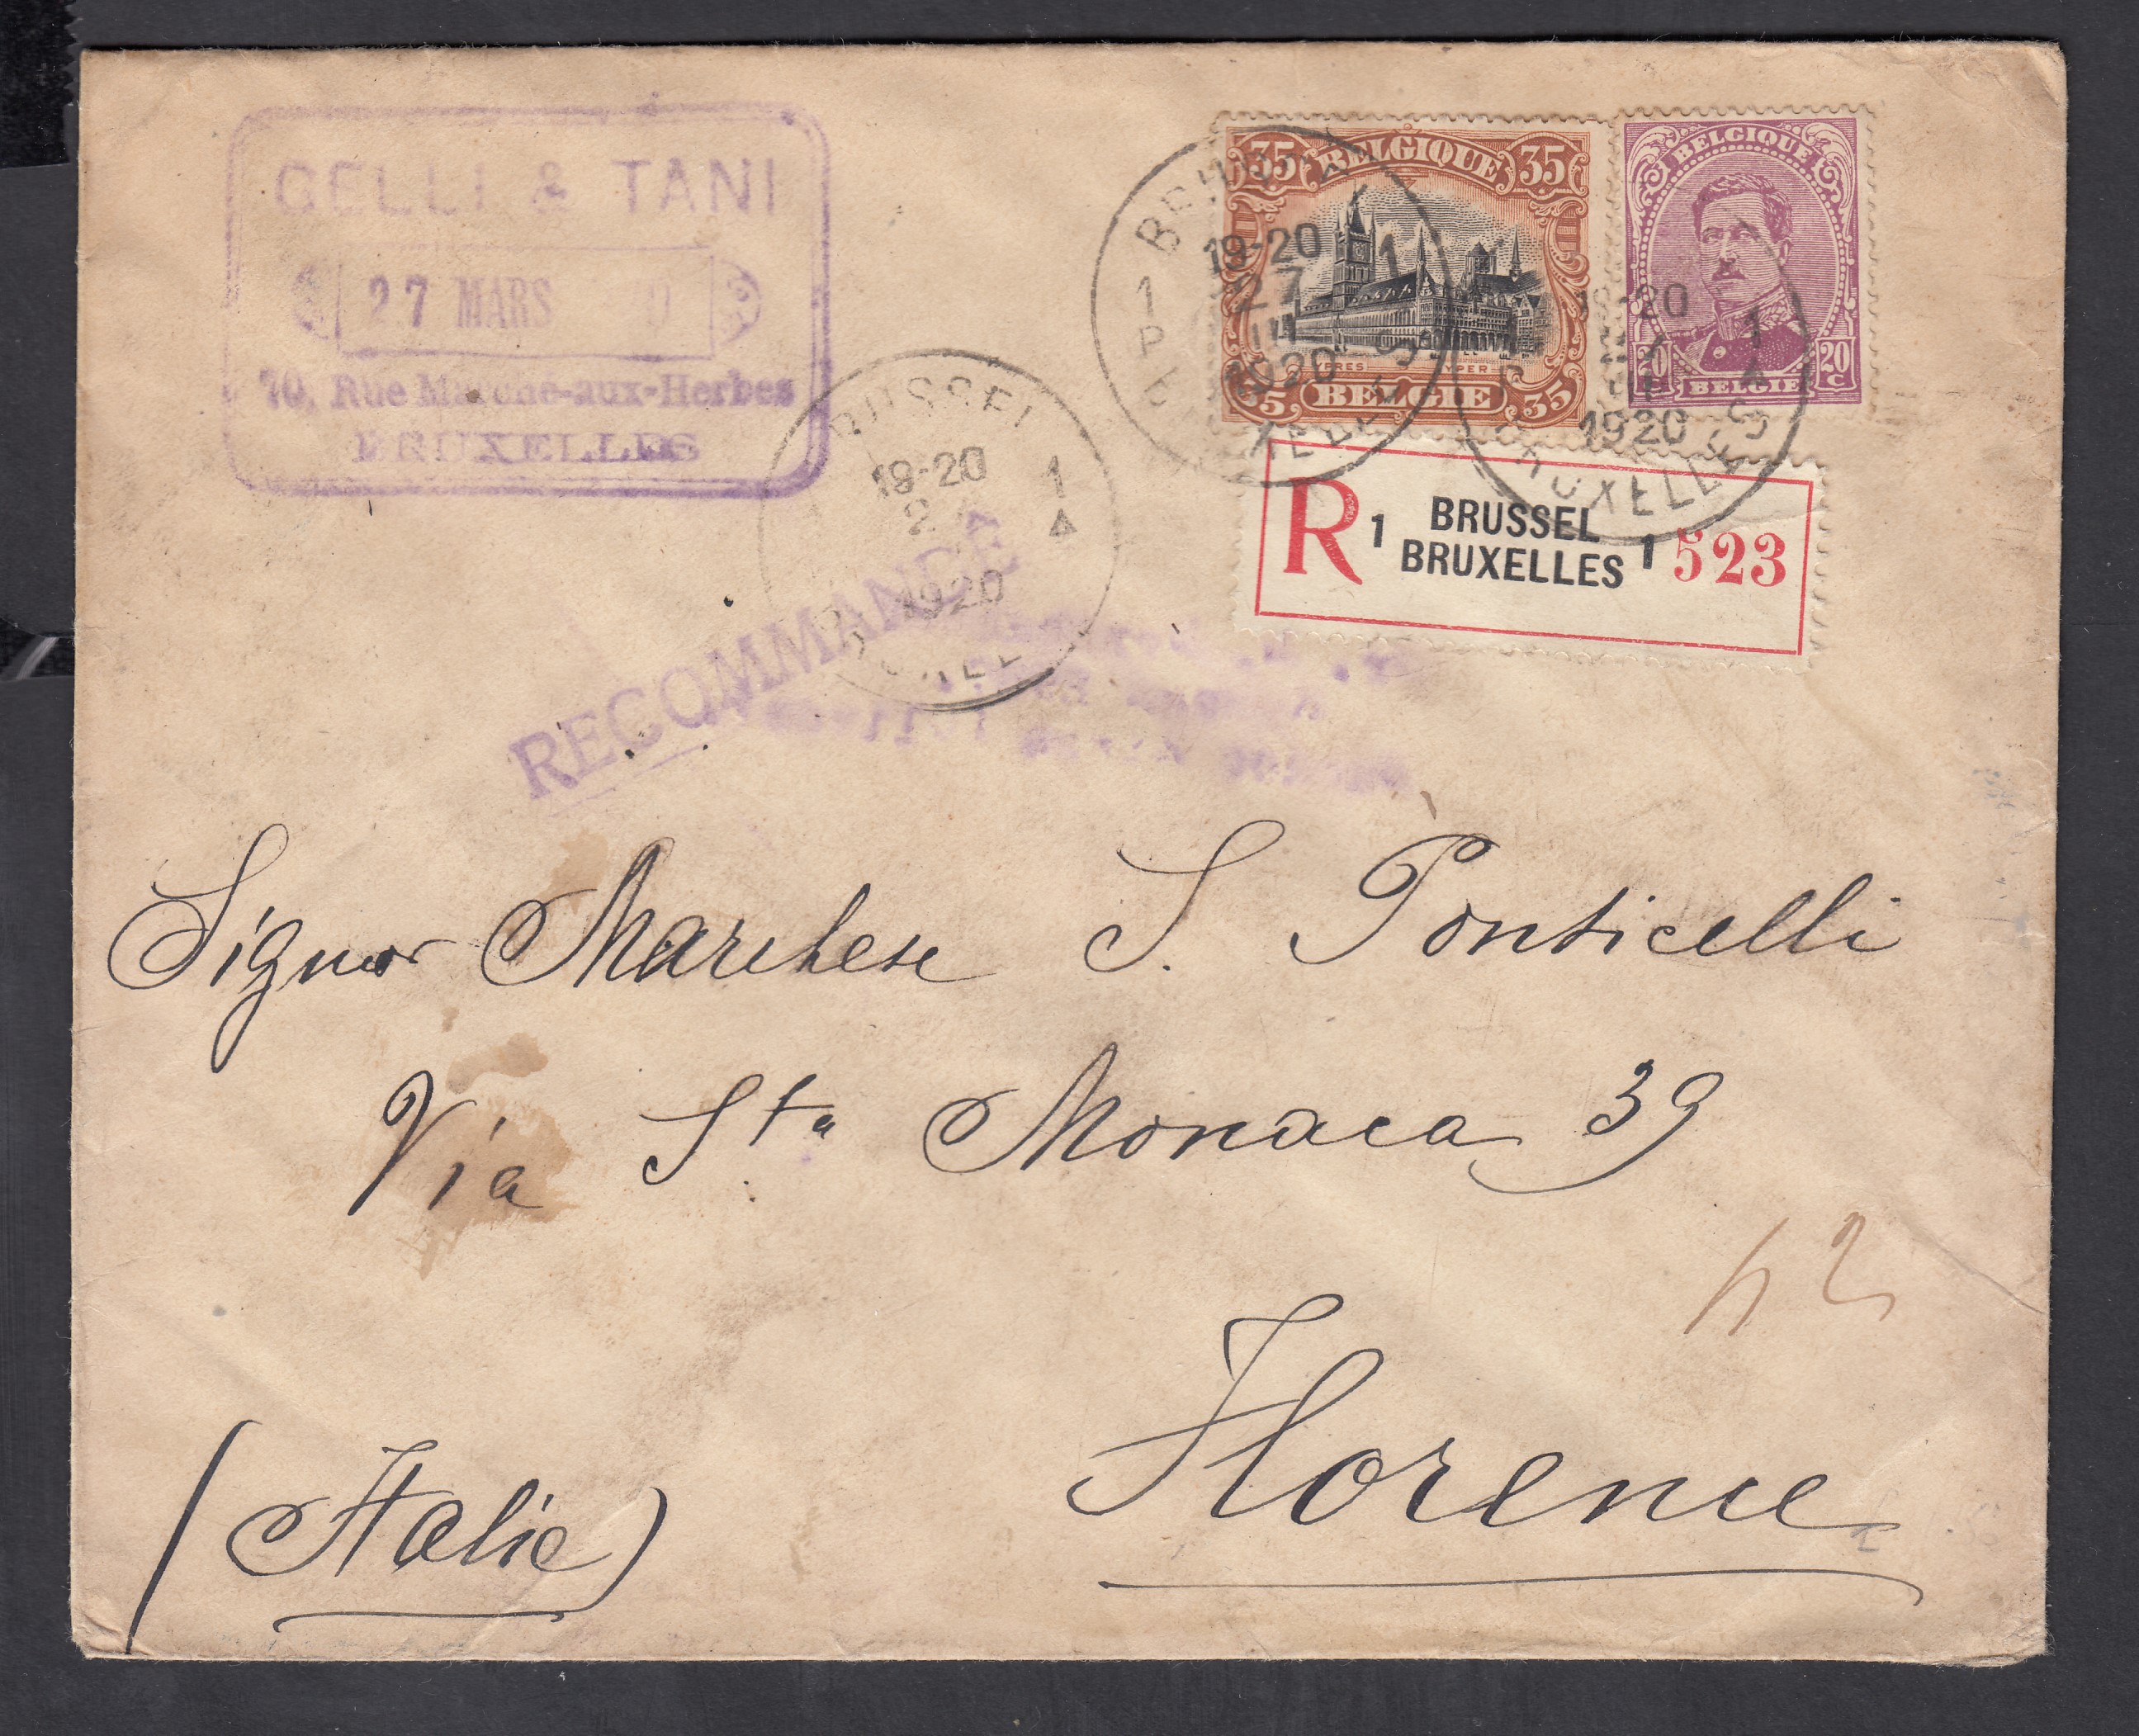 GELLI & TANI
27 MARS
70, Rue Marché-aux-Herbes
BRUXELLES
35 BELGIQUE 35
YPRES YPER
35 BELGIE 35
BELGIQUE
20 C 20 C
BELGIE
1 19-20 1
27
1920
BRUXELLES
19-20 1
1920
BRUXELLES
BRUSSEL
19-20 1
1920
R 1 BRUSSEL
BRUXELLES 1 523
RECOMMANDÉ
Signor Marchese S. Ponticelli
Via Sta Monaca 39
42
Florence
(Italie)